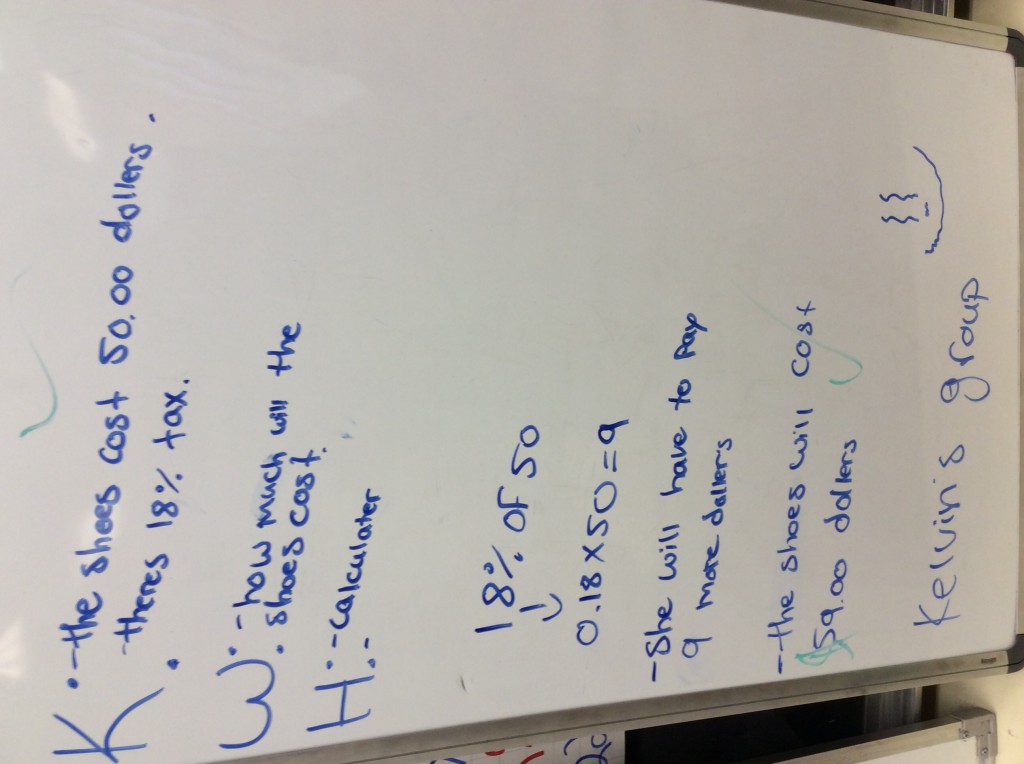 K • -the shoes cost 50.00 dollers.
• -theres 18% tax.
W • -how much will the
• shoes cost.
H • -calculater
• -
18% OF 50
0.18 x 50 = 9
-She will have to Pay
9 more dollers
-the shoes will cost
$59.00 dollers
Kelvin's group